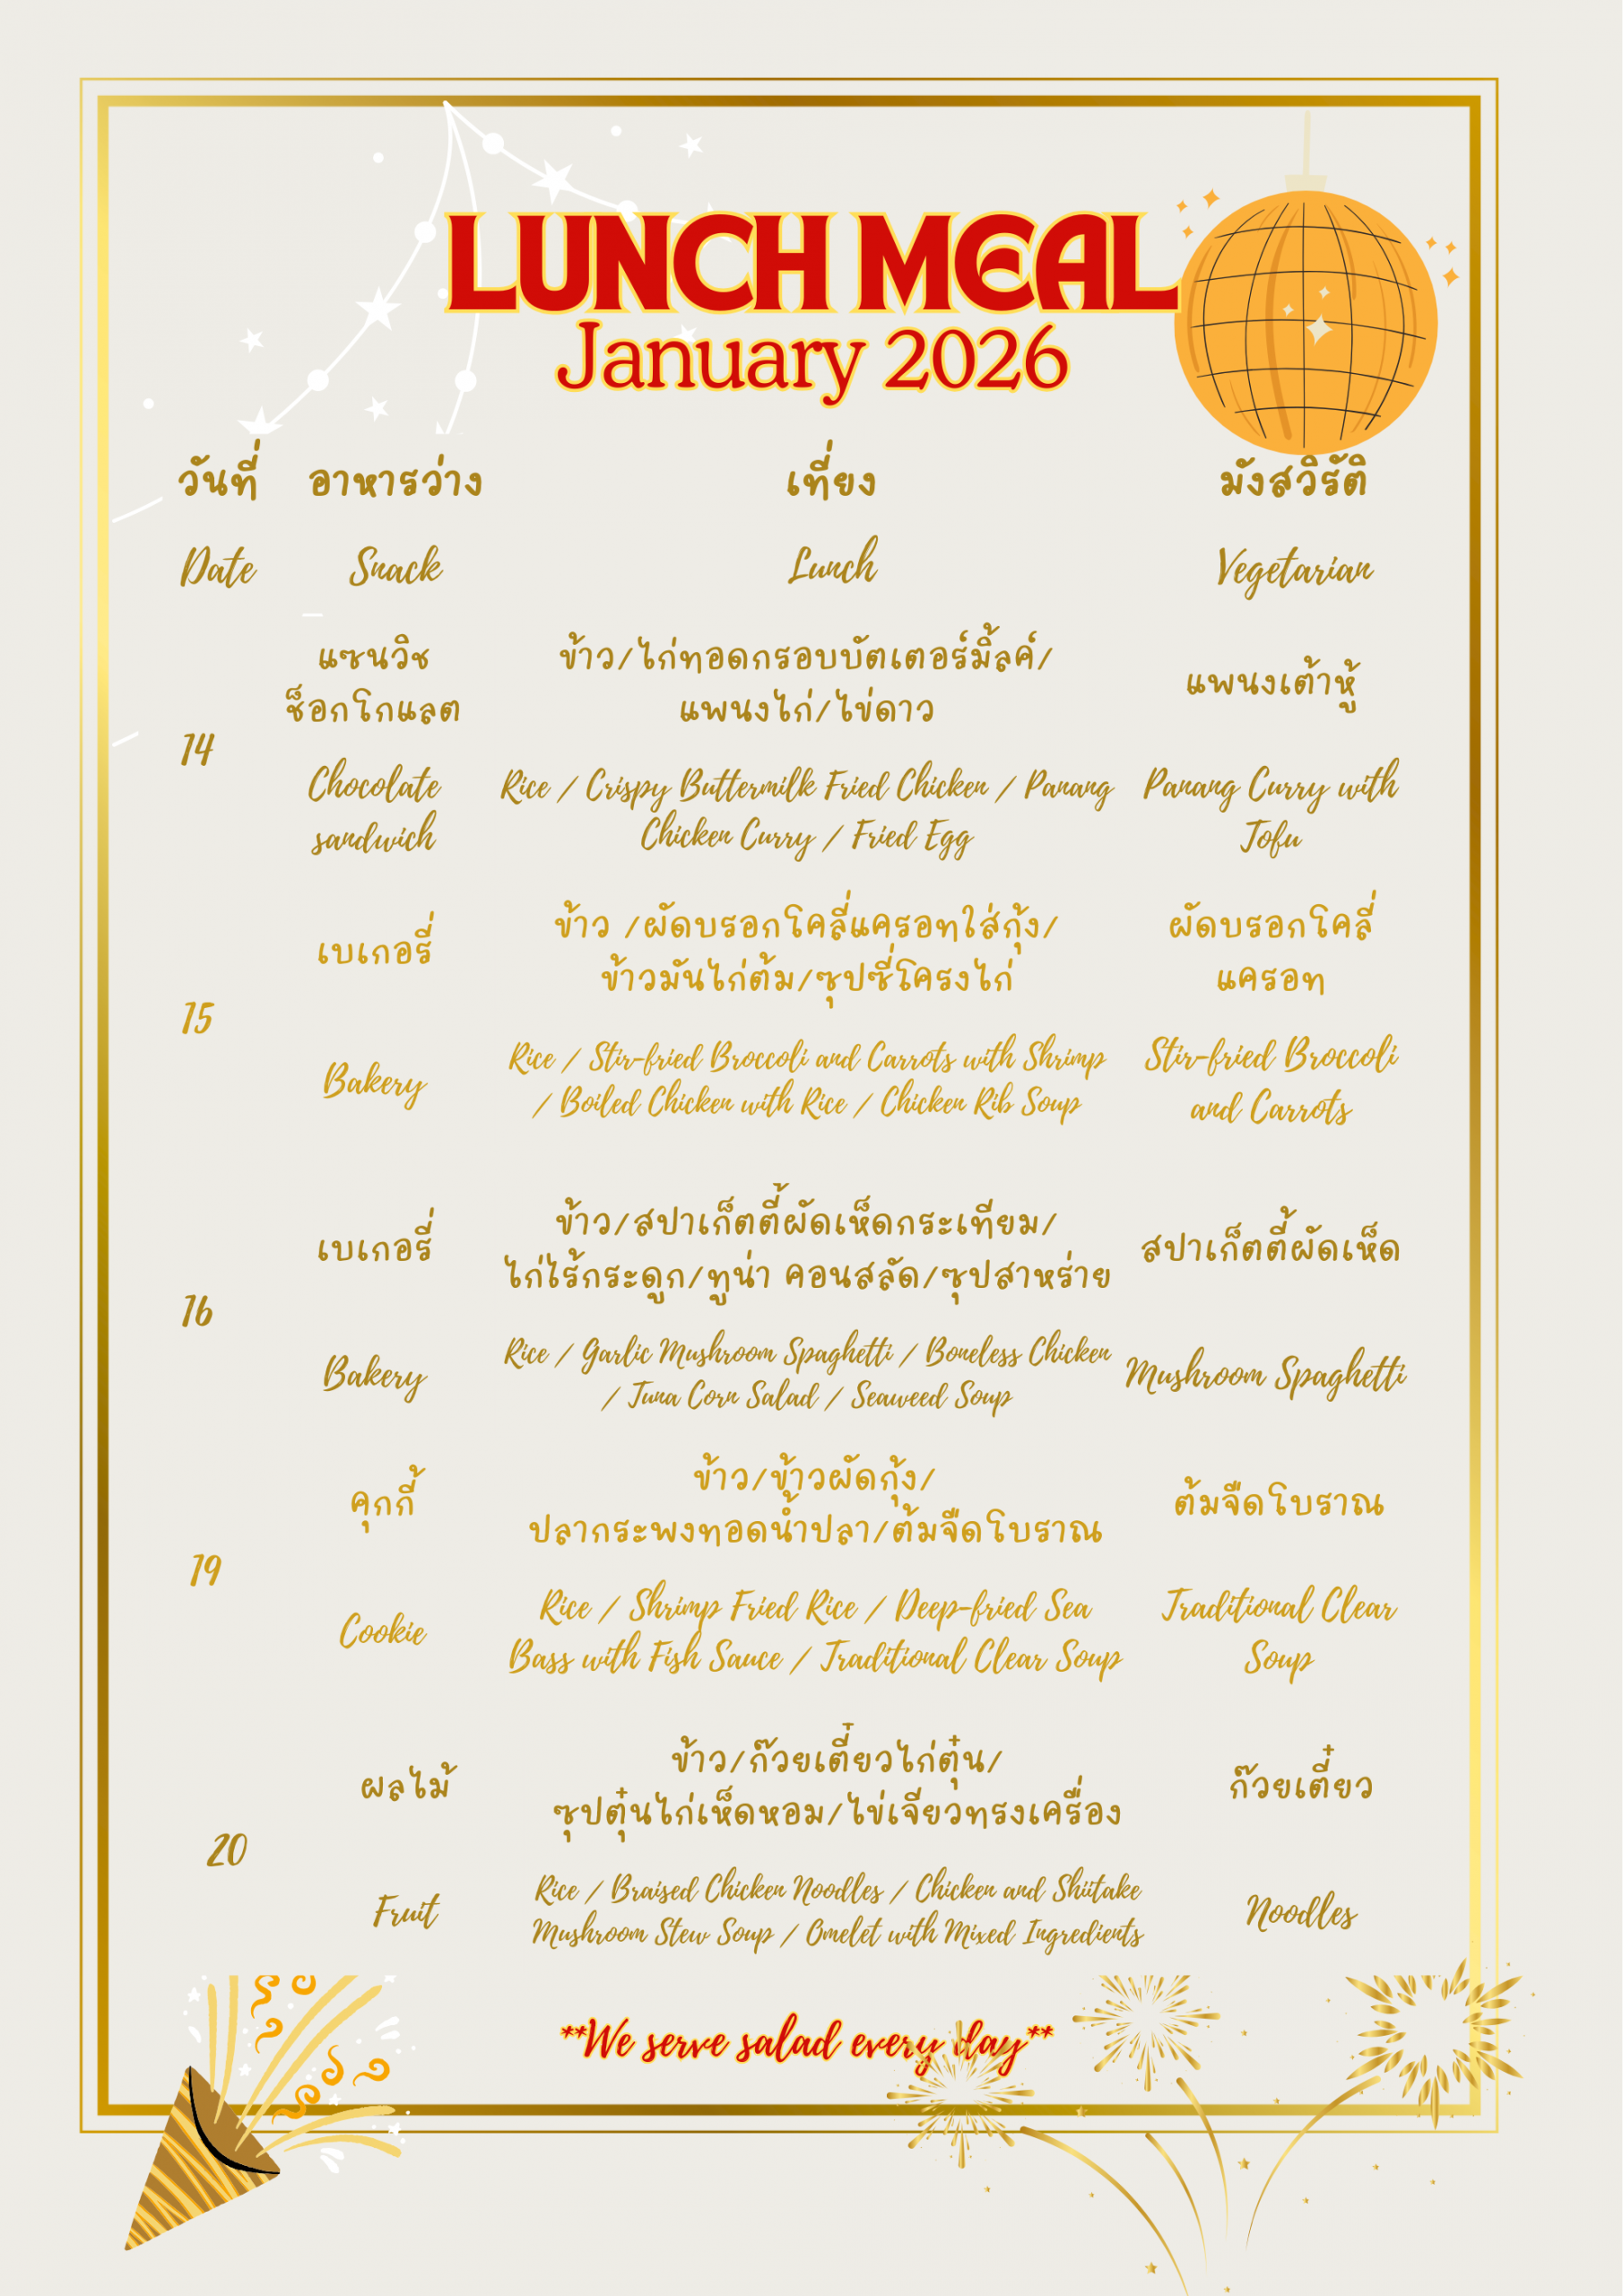 LUNCH MEAL
January 2026
วันที่ อาหารว่าง เที่ยง มังสวิรัติ
Date Snack Lunch Vegetarian
14
แซนวิช
ช็อกโกแลต
Chocolate
sandwich
ข้าว/ไก่ทอดกรอบบัตเตอร์มิ้ลค์/
แพนงไก่/ไข่ดาว
Rice / Crispy Buttermilk Fried Chicken / Panang
Chicken Curry / Fried Egg
แพนงเต้าหู้
Panang Curry with
Tofu
15
เบเกอรี่
Bakery
ข้าว /ผัดบรอกโคลี่แครอทใส่กุ้ง/
ข้าวมันไก่ต้ม/ซุปซี่โครงไก่
Rice / Stir-fried Broccoli and Carrots with Shrimp
/ Boiled Chicken with Rice / Chicken Rib Soup
ผัดบรอกโคลี่
แครอท
Stir-fried Broccoli
and Carrots
16
เบเกอรี่
Bakery
ข้าว/สปาเก็ตตี้ผัดเห็ดกระเทียม/
ไก่ไร้กระดูก/ทูน่า คอนสลัด/ซุปสาหร่าย
Rice / Garlic Mushroom Spaghetti / Boneless Chicken
/ Tuna Corn Salad / Seaweed Soup
สปาเก็ตตี้ผัดเห็ด
Mushroom Spaghetti
19
คุกกี้
Cookie
ข้าว/ข้าวผัดกุ้ง/
ปลากระพงทอดน้ำปลา/ต้มจืดโบราณ
Rice / Shrimp Fried Rice / Deep-fried Sea
Bass with Fish Sauce / Traditional Clear Soup
ต้มจืดโบราณ
Traditional Clear
Soup
20
ผลไม้
Fruit
ข้าว/ก๊วยเตี๋ยวไก่ตุ๋น/
ซุปตุ๋นไก่เห็ดหอม/ไข่เจียวทรงเครื่อง
Rice / Braised Chicken Noodles / Chicken and Shiitake
Mushroom Stew Soup / Omelet with Mixed Ingredients
ก๊วยเตี๋ยว
Noodles
**We serve salad every day**